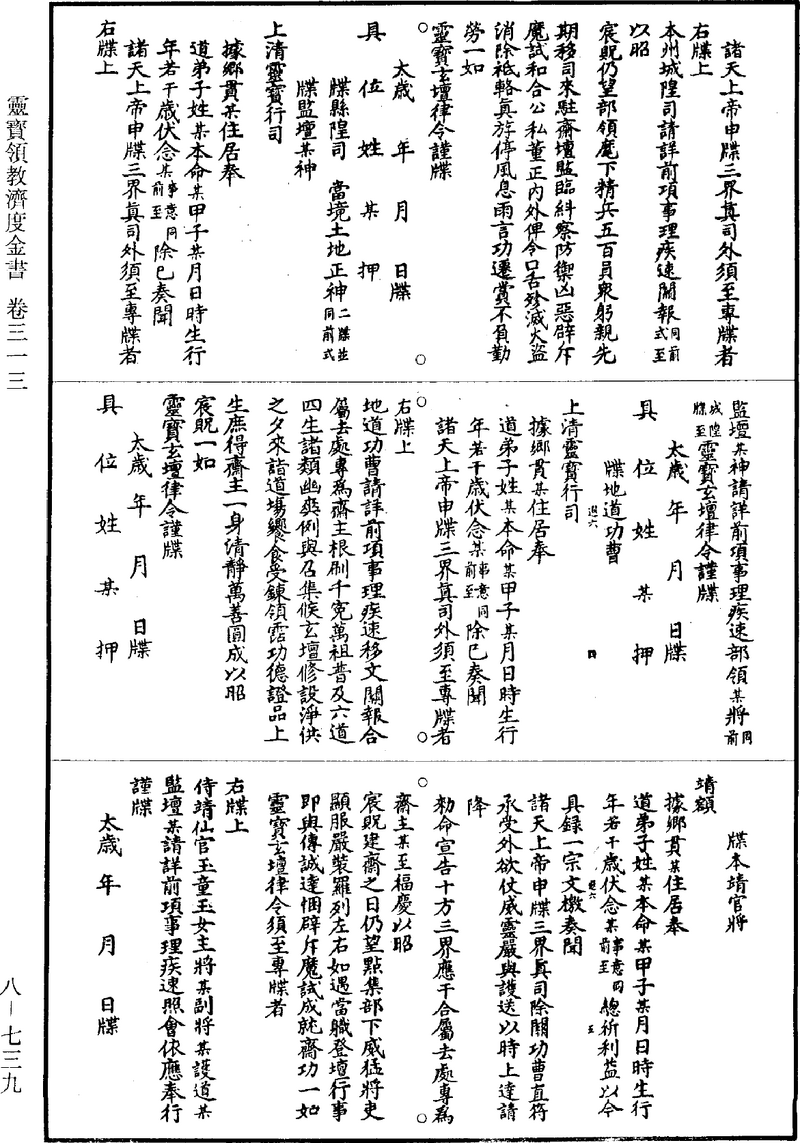 靈寶領教濟度金書　卷三一三
八－七三九
諸天上帝申牒三界真司外須至專牒者
右牒上
本州城隍司請詳前項事理疾速關報同前式至
以昭
宸貺仍望部領麾下精兵五百員衆躬親先
期移司來駐齋壇監臨糾察防禦凶惡辟斥
魔試和合公私董正内外俾令口舌殄滅火盜
消除祗輅真游停風息雨言功遷賞不負勤
勞一如
靈寶玄壇律令謹牒
太歲　年　月　日牒
具　位　姓　某　押
牒縣隍司　當境土地正神二牒並同前式
牒監壇某神
上清靈寶行司
據鄉貫某住居奉
道弟子姓某本命某甲子某月日時生行
年若干歲伏念某事意同前至除已奏聞
諸天上帝申牒三界真司外須至專牒者
右牒上
監壇某神請詳前項事理疾速部領某將同前
城隍牒至靈寶玄壇律令謹牒
太歲　年　月　日牒
具　位　姓　某　押
牒地道功曹
上清靈寶行司
據鄉貫某住居奉
道弟子姓某本命某甲子某月日時生行
年若干歲伏念某事意同前至除已奏聞
諸天上帝申牒三界真司外須至專牒者
右牒上
地道功曹請詳前項事理疾速移文關報合
屬去處專為齋主根刷千寃萬祖普及六道
四生諸類幽爽例與召集候玄壇修設淨供
之夕來詣道場饗食受鍊領霑功德證品上
生庶得齋主一身清靜萬善圓成以昭
宸貺一如
靈寶玄壇律令謹牒
太歲　年　月　日牒
具　位　姓　某　押
牒本靖官將
靖額
據鄉貫某住居奉
道弟子姓某本命某甲子某月日時生行
年若干歲伏念某事意同前至總祈利益以今
具録一宗文檄奏聞
諸天上帝申牒三界真司除關功曹直符
承受外欲仗威靈嚴與護送以時上達請
降
勑命宣告十方三界應干合屬去處專為
齋主某至福慶以昭
宸貺建齋之日仍望點集部下威猛將吏
顯服嚴裝羅列左右如遇當職登壇行事
即與傳誠達悃辟斥魔試成就齋功一如
靈寶玄壇律令須至專牒者
右牒上
侍靖仙官玉童玉女主將某副將某護道某
監壇某請詳前項事理疾速照會依應奉行
謹牒
太歲　年　月　日牒